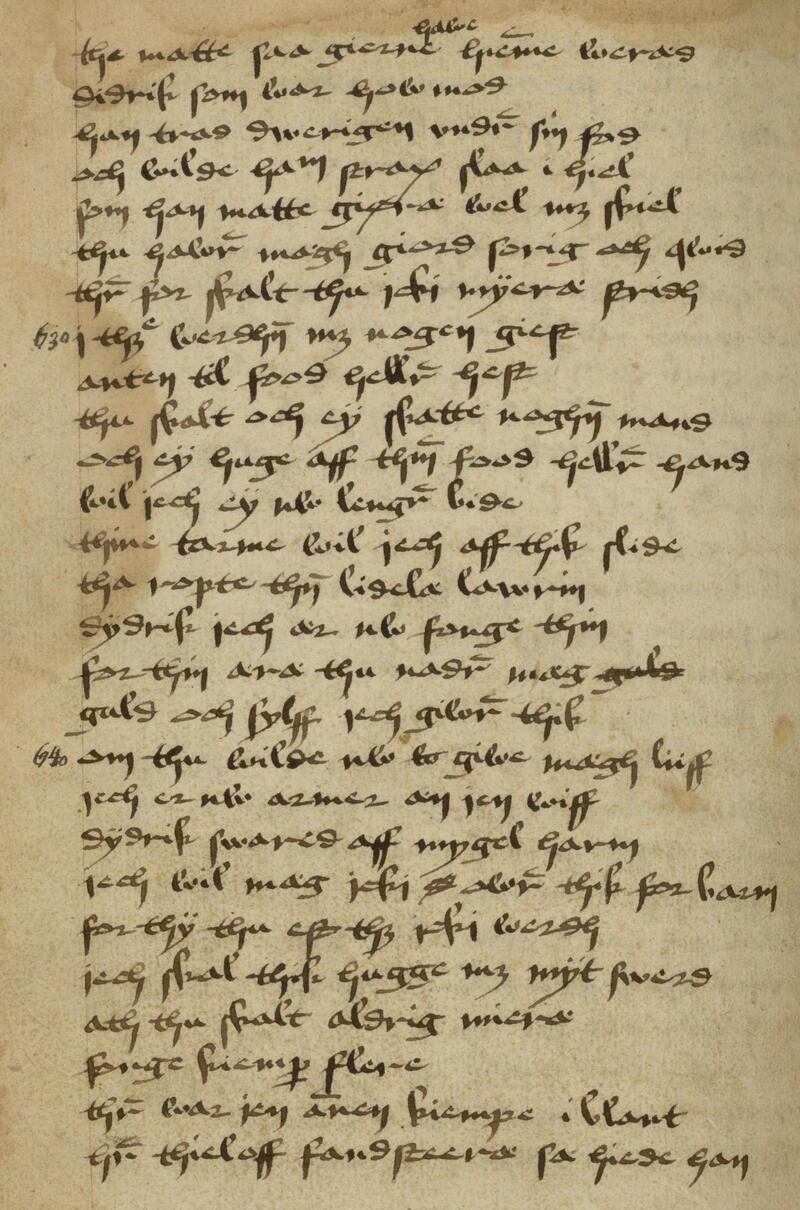 the matte saa gierne hawe hiēme weræs
didrik som war how mod
han trad dwerigen vndr̄ sin fod
och wilde ham strax slaa i hiel
som han matte giøræ wel mꝫ skiel
thu hawr̄ magh giord sorig och qwid
thr̄ for skalt thu icki myeræ fridh
630 i thꝫe werdhn̄ mꝫ nogen giest
anten til food hellr̄ hest
thu skalt och ey skatte noghn̄ mand
och ey huge aff thin̄ food hellr̄ hand
wil iech ey nw lengr̄ bide
thine tarme wil iech aff thik slide
tha ropte thn̄ lidelæ lawrin
dydrik iech ær nw fonge thin
for thin æræ thu nadr̄ mæg guld
guld och sylff iech giwr̄ thik
640 om thu wilde nw giwe mægh liiff
iech er nw armer æn ien wiff
dydrik swared aff mygel harm
iech wil mæg icki owr̄ thik for barm
for thy thu est thꝫ icki werdh
iech skal thik hugge mꝫ myt swerd
ath thu skalt aldrig mieræ
fonge kiemꝑ flere
thr̄ war ien an̄en kiempe i blant
hr̄ thieloff fandsteeræ sa hiede han